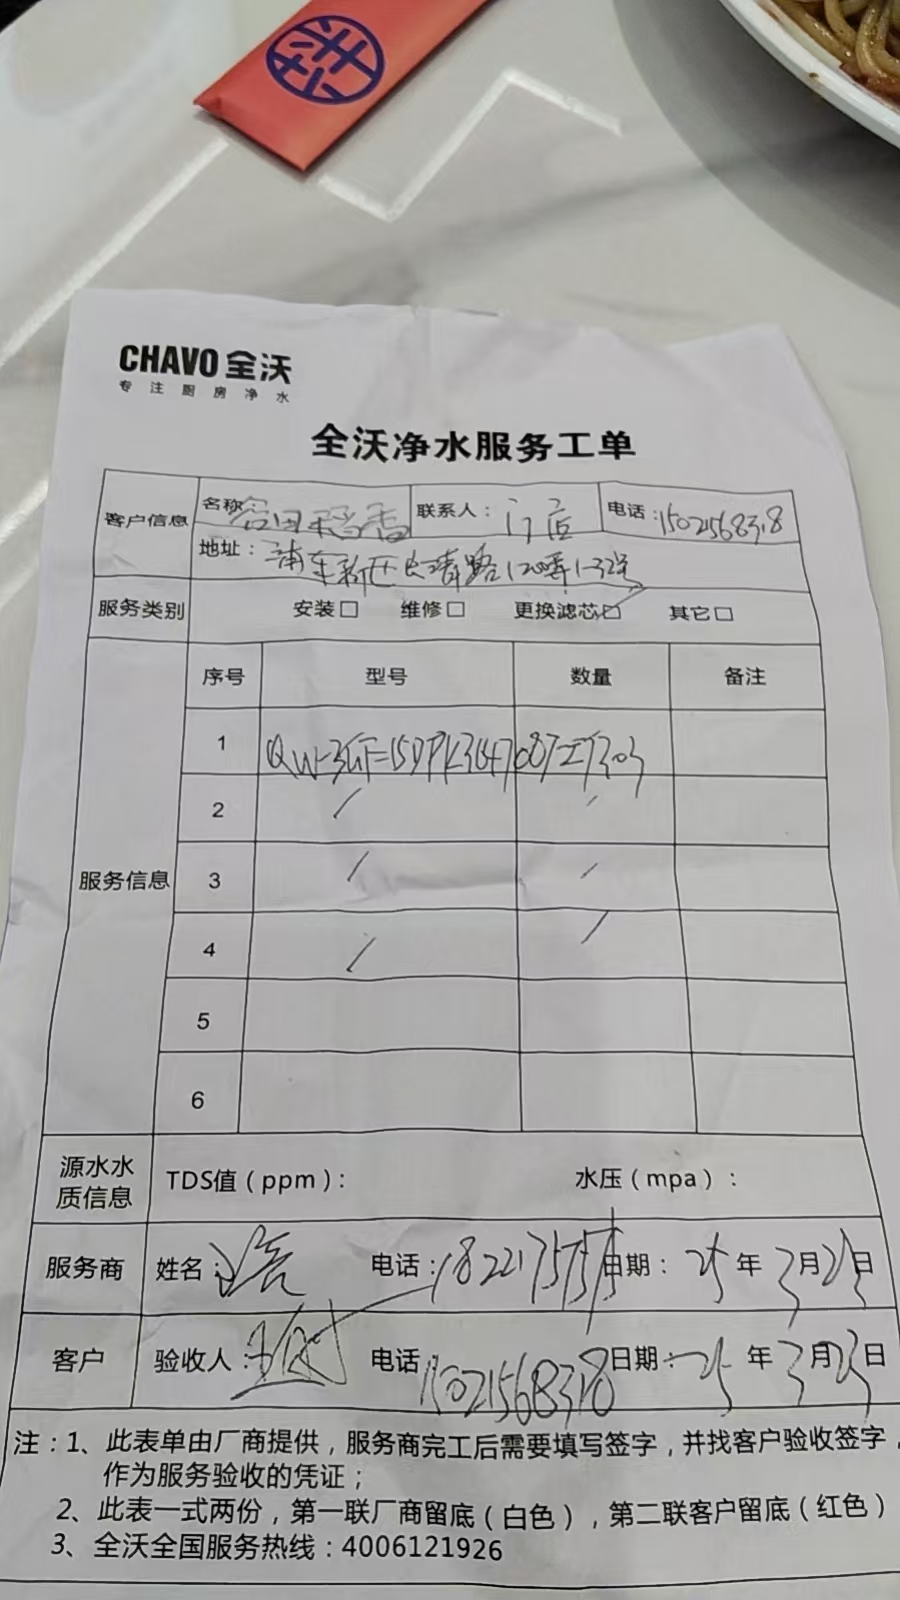 CHAVO 全沃
专注厨房净水
全沃净水服务工单
客户信息 名称 谷田稻香 联系人：门店 电话：15021568318
地址：浦东新区长清路120弄1-32号
服务类别 安装□ 维修□ 更换滤芯☑ 其它□
服务信息 序号 型号 数量 备注
1
2 / /
3 / /
4 / /
5
6
源水水质信息 TDS值（ppm）： 水压（mpa）：
服务商 姓名： 电话： 日期：25年3月23日
客户 验收人： 电话 15021568318 日期：25年3月23日
注：1、此表单由厂商提供，服务商完工后需要填写签字，并找客户验收签字，
作为服务验收的凭证；
2、此表一式两份，第一联厂商留底（白色），第二联客户留底（红色）
3、全沃全国服务热线：4006121926